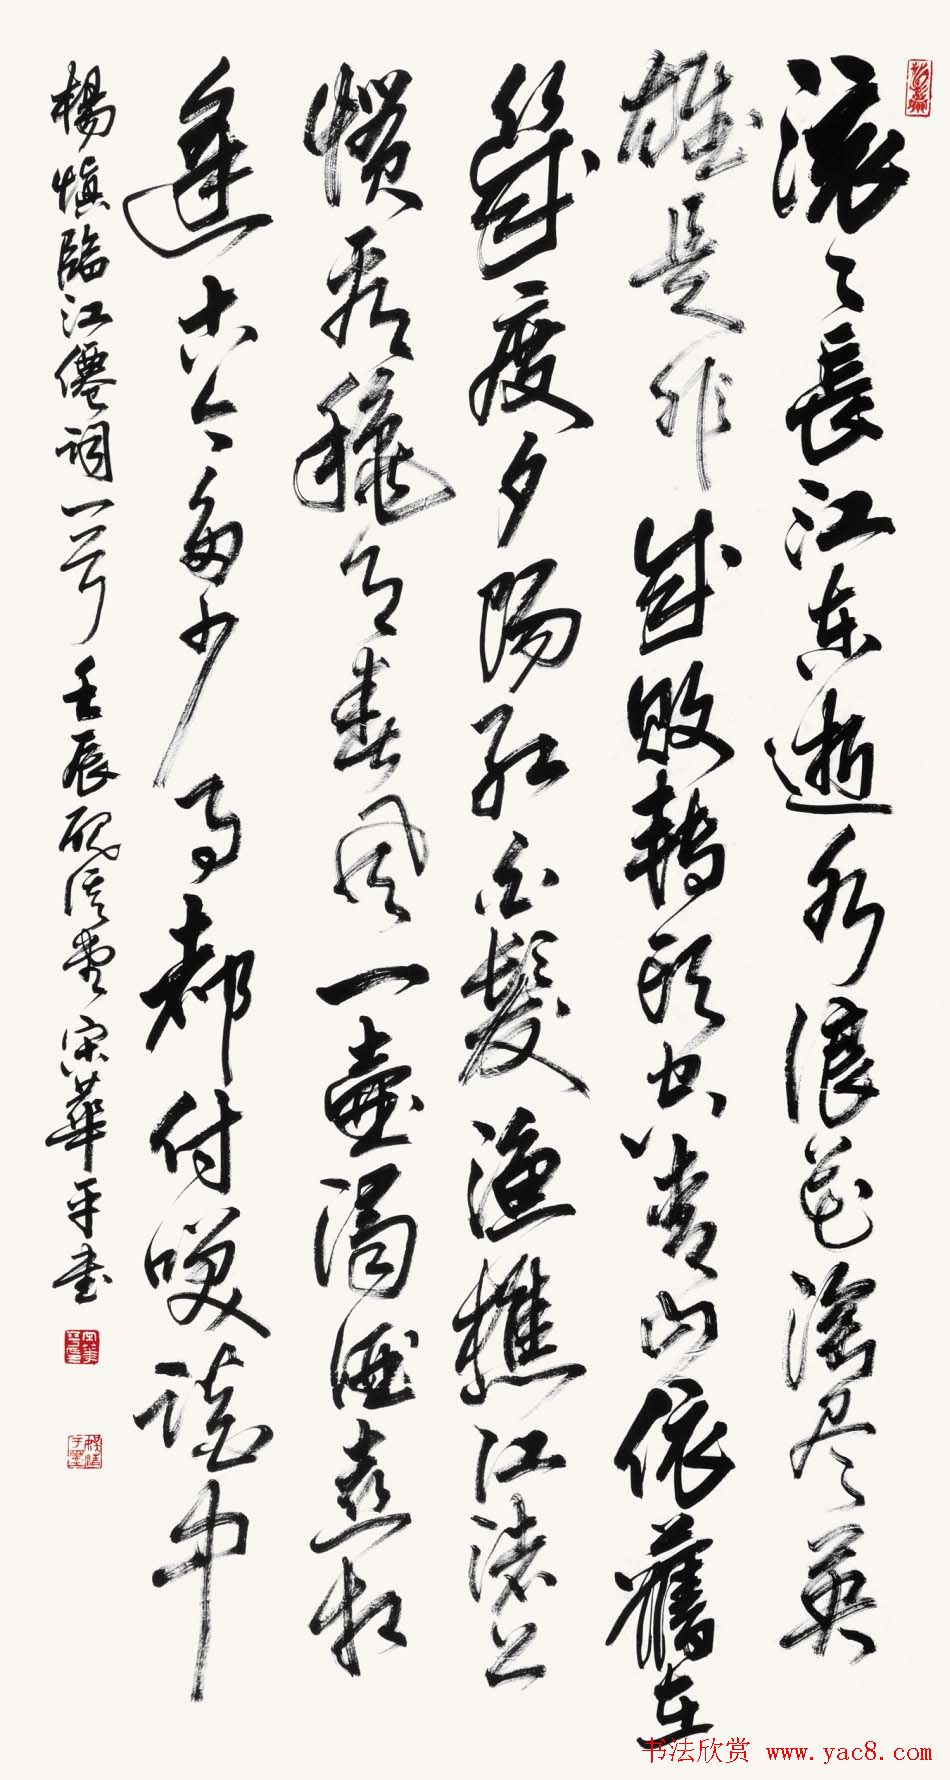 滚々長江東逝水浪花淘尽英
雄是非成敗轉頭空青山依舊在
幾度夕陽紅白髮漁樵江渚上
慣看秋月春風一壺濁酒喜相
逢古今多少事都付笑談中
楊慎臨江僊詞一首 壬辰 宋華平書
书法欣赏 www.yac8.com